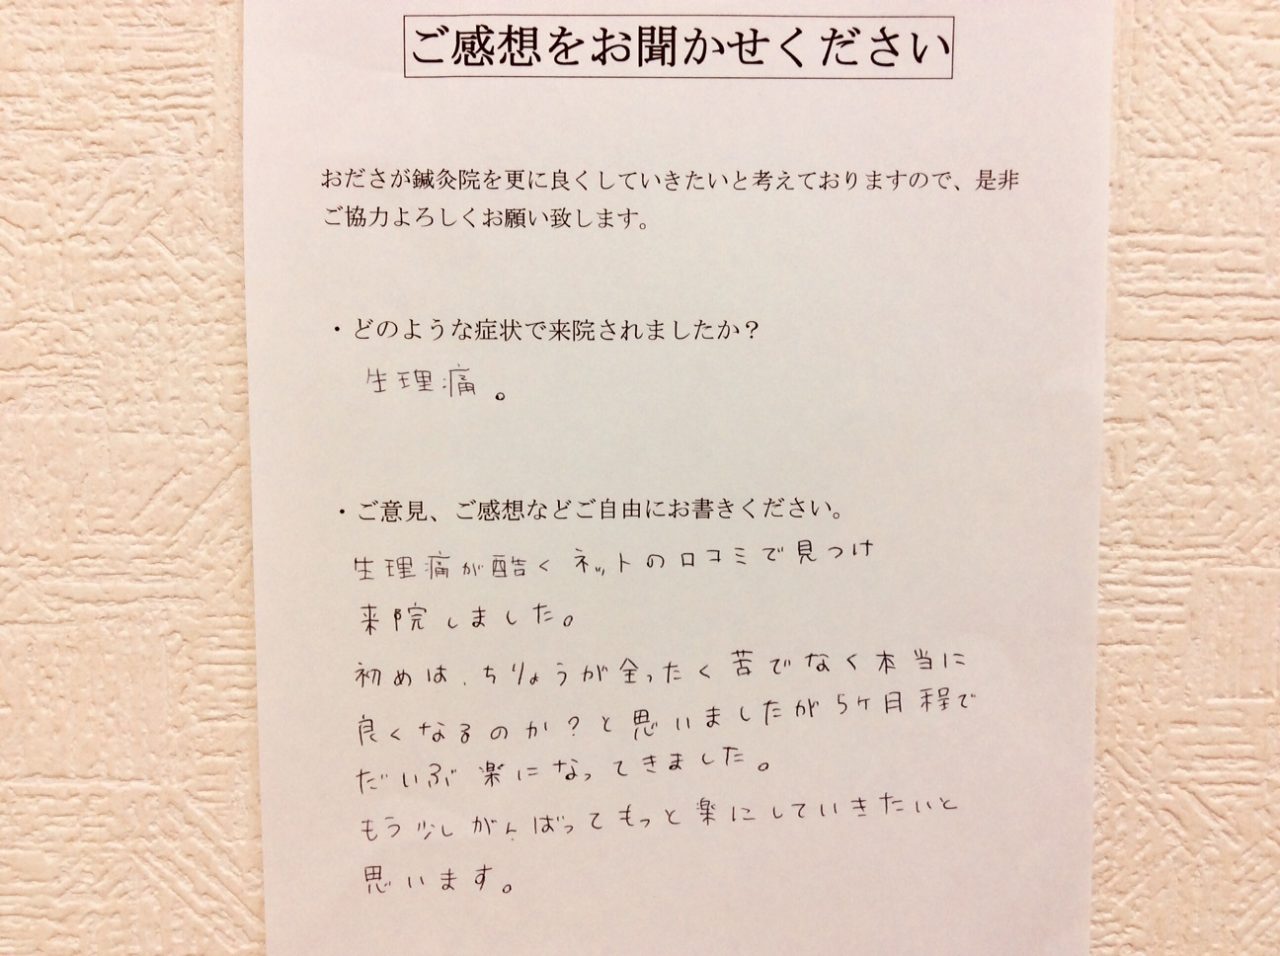 ご感想をお聞かせください
おださが鍼灸院を更に良くしていきたいと考えておりますので、是非
ご協力よろしくお願い致します。
・どのような症状で来院されましたか？
生理痛。
・ご意見、ご感想などご自由にお書きください。
生理痛が酷くネットの口コミで見つけ
来院しました。
初めは、ちりょうが全ったく苦でなく本当に
良くなるのか？と思いましたが5ヶ月程で
だいぶ楽になってきました。
もう少しがんばってもっと楽にしていきたいと
思います。